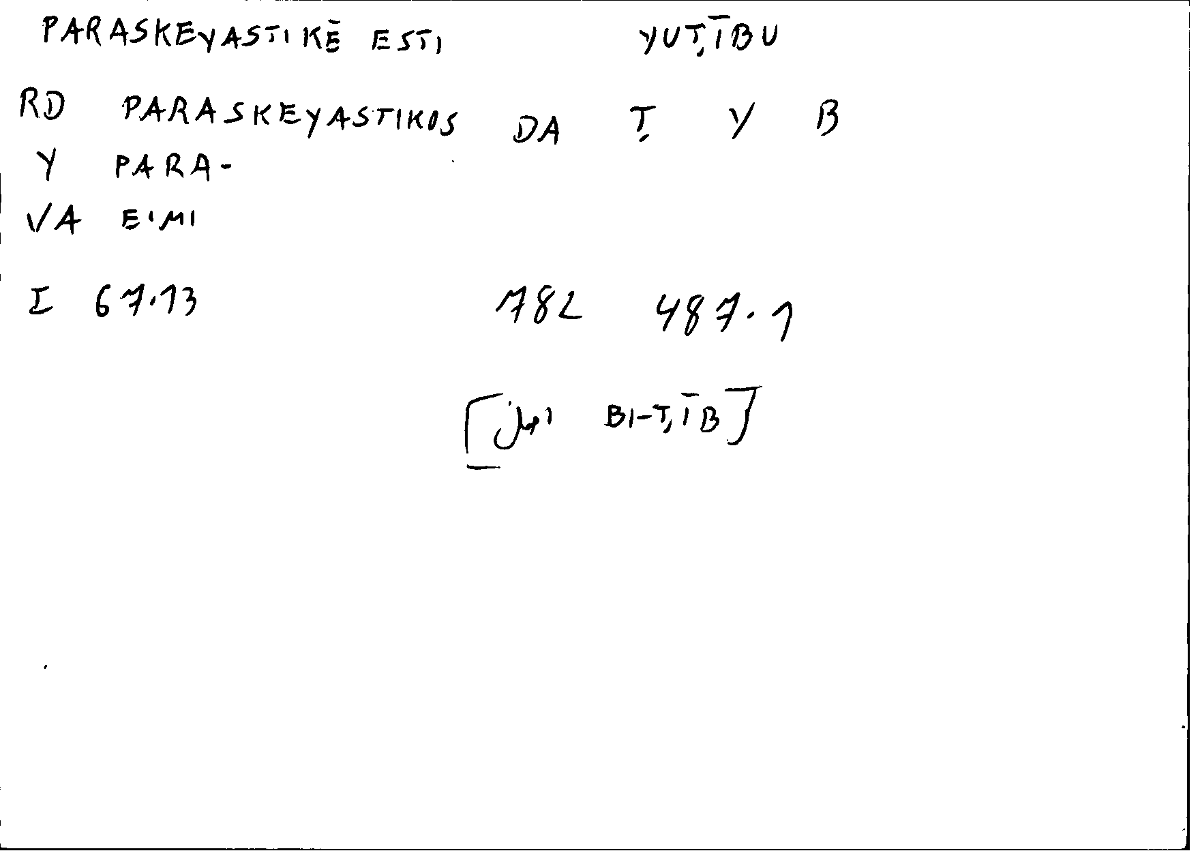 PARASKEYASTIKĒ ESTI YUṬĪBU
RD PARASKEYASTIKOS DA Ṭ Y B
Y PARA-
VA EIMI
I 67.13 782 487.1
[ BI-ṬĪB]